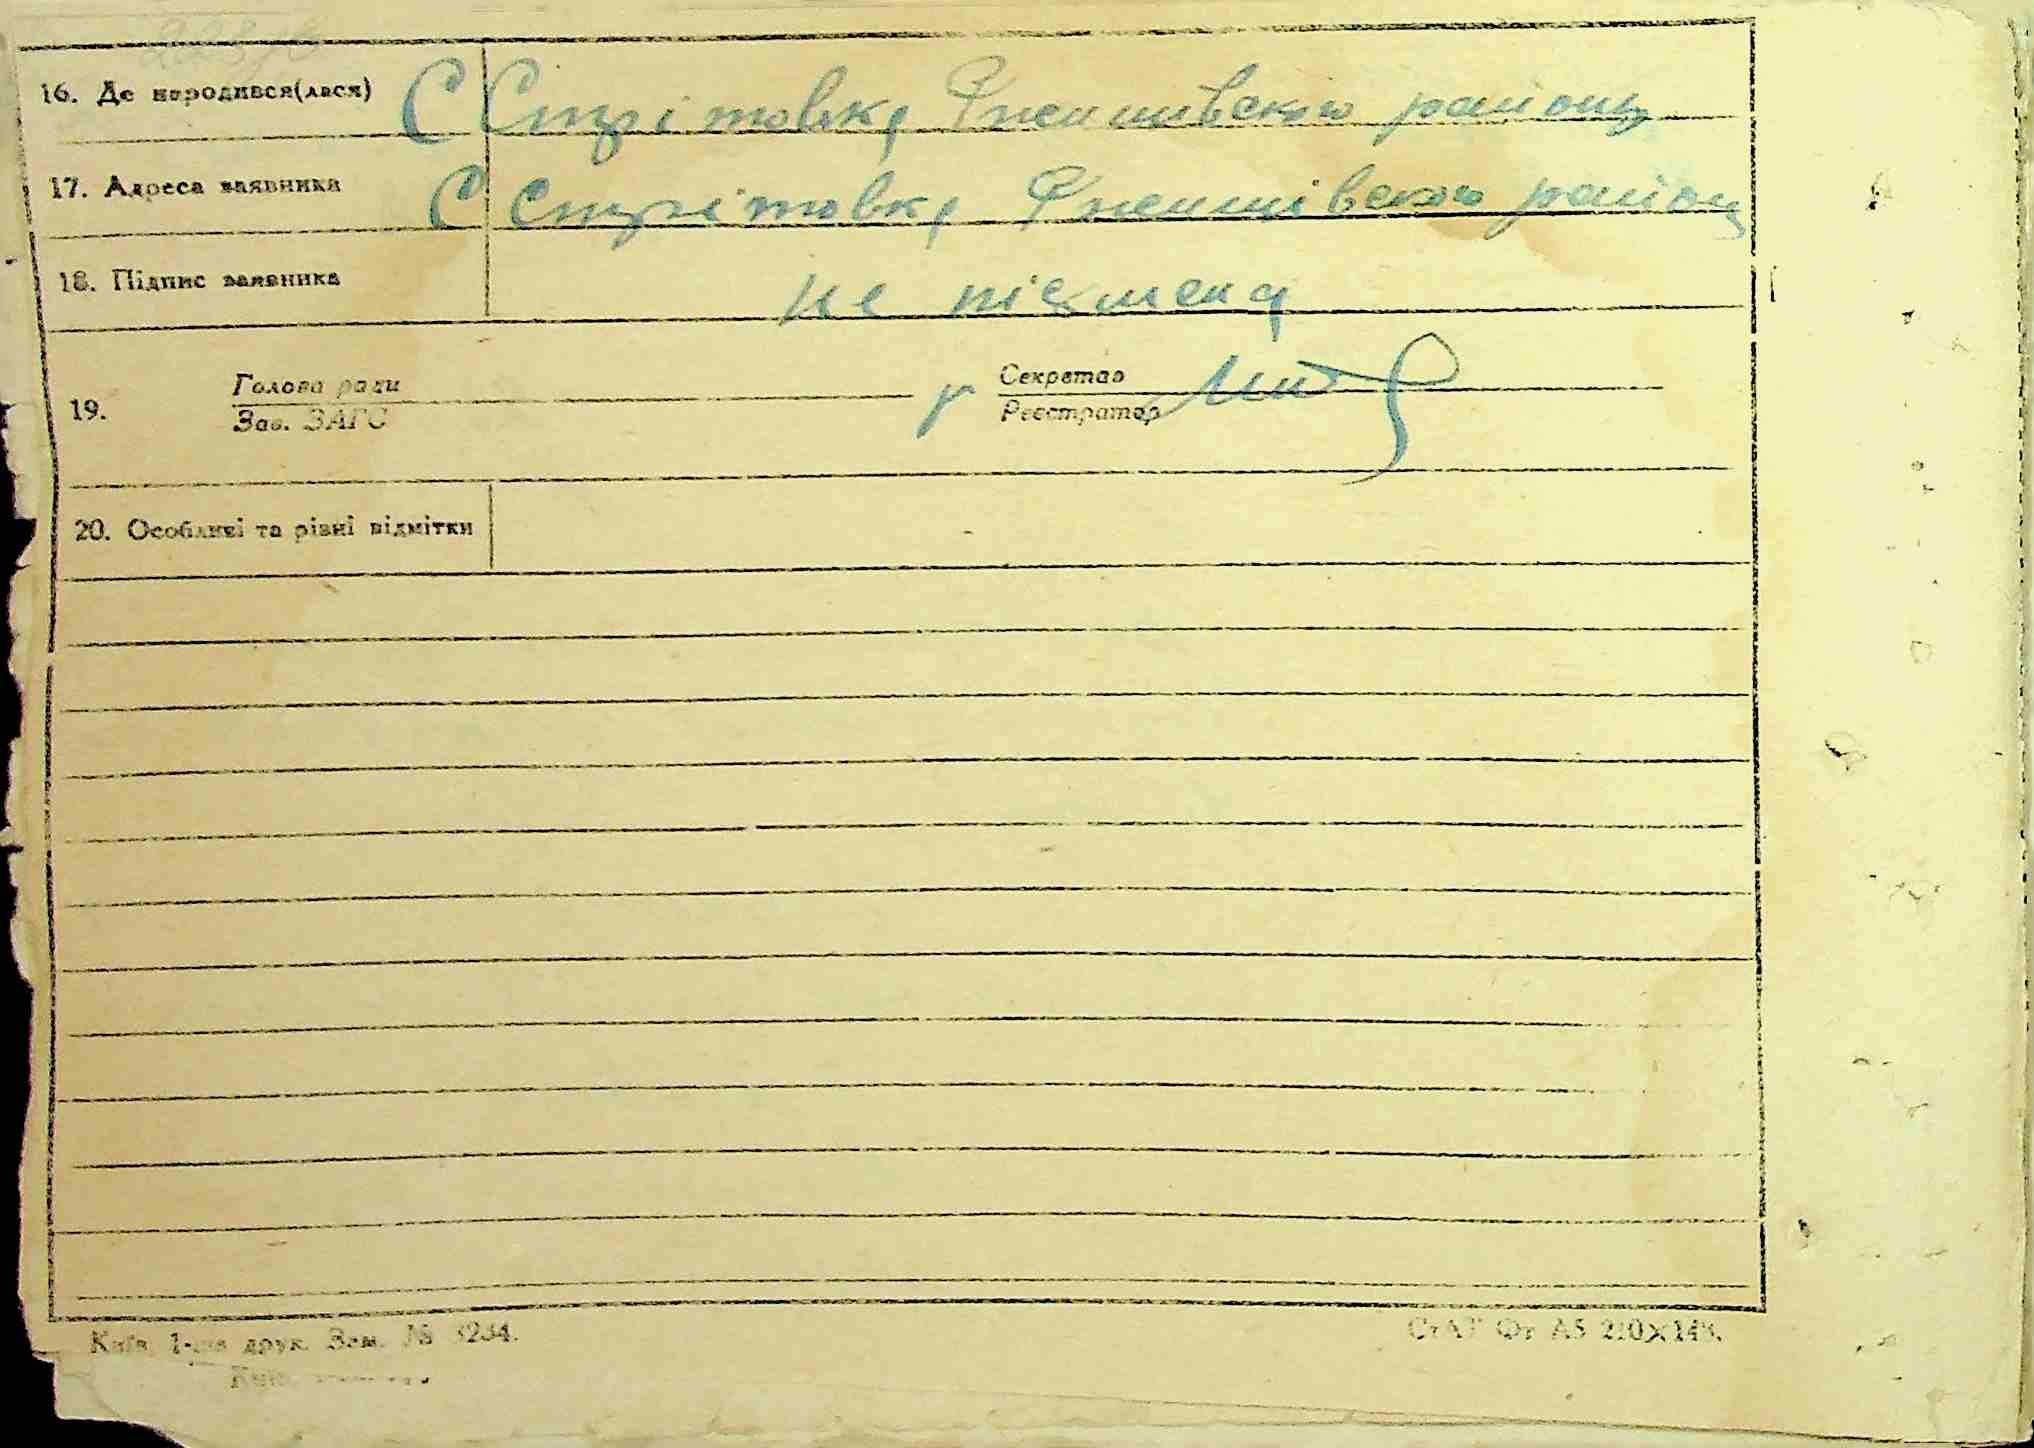 16. Де народився(лася) С Стрітовка Ржищівского району
17. Адреса заявника С Стрітовка Ржищівского району
18. Підпис заявника не пісмена
Голова ради Секретар
19.
Зав. ЗАГС Реєстратор
20. Особливі та різні відмітки
Київ 1-ша друк. Зам. № 3234.
СтАТ Фт А5 210×148.